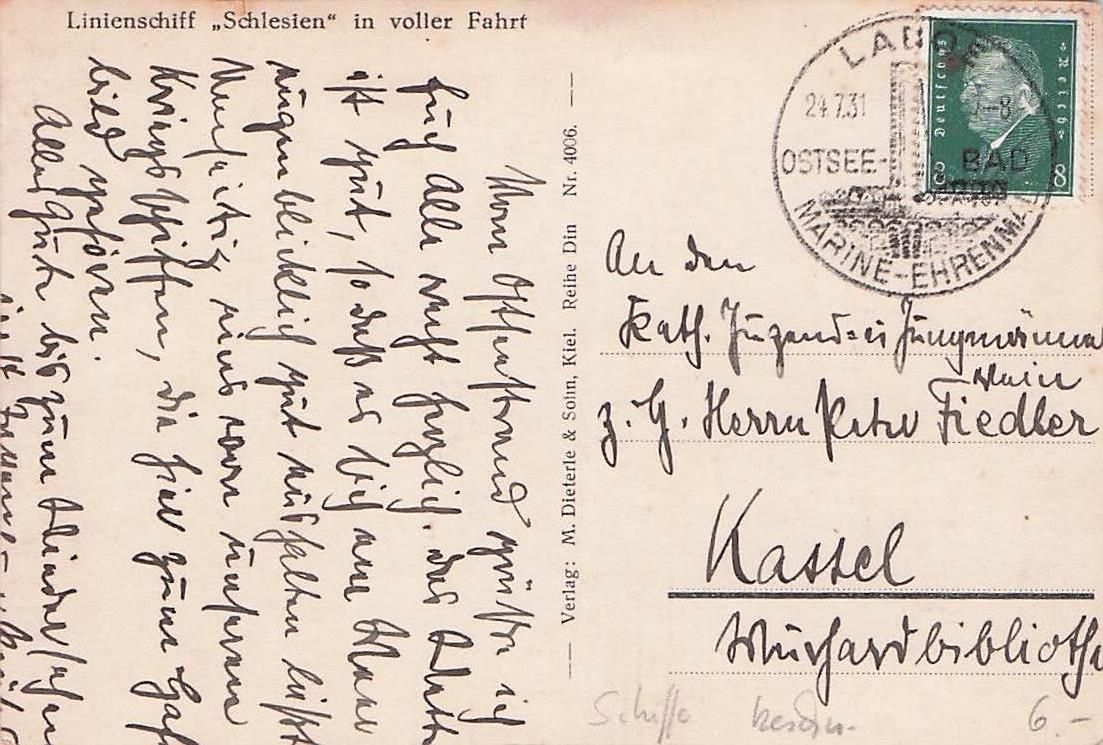 Linienschiff „Schlesien“ in voller Fahrt
LABOE
24.7.31
7-8
OSTSEE-BAD
MARINE-EHRENMA
Deutsches Reich
8
8
Vom Ostseestrand grüße ich
Euch alle recht herzlich. Das Wetter
ist gut, so daß es sich am Wasser
augenblicklich gut aushalten läßt.
eins von unseren
Kriegsschiffen, die hier zum
bild gehören.
Alles Gute bis zum Wiedersehen
Verlag: M. Dieterle & Sohn, Kiel. Reihe Din Nr. 4006.
An den
Kath. Jugend= u. Jungmänner
verein
z. H. Herrn Peter Fiedler
Kassel
Murhardbibliothe
Schiffe
6.–